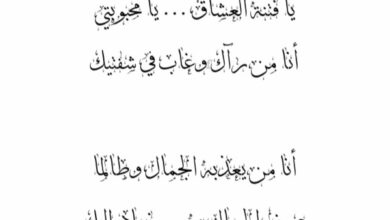 يا فتنة العشاق... يا محبوبتي
أنا من رآك وغاب في شفتيك
أنا من يعذبه الجمال وطالما